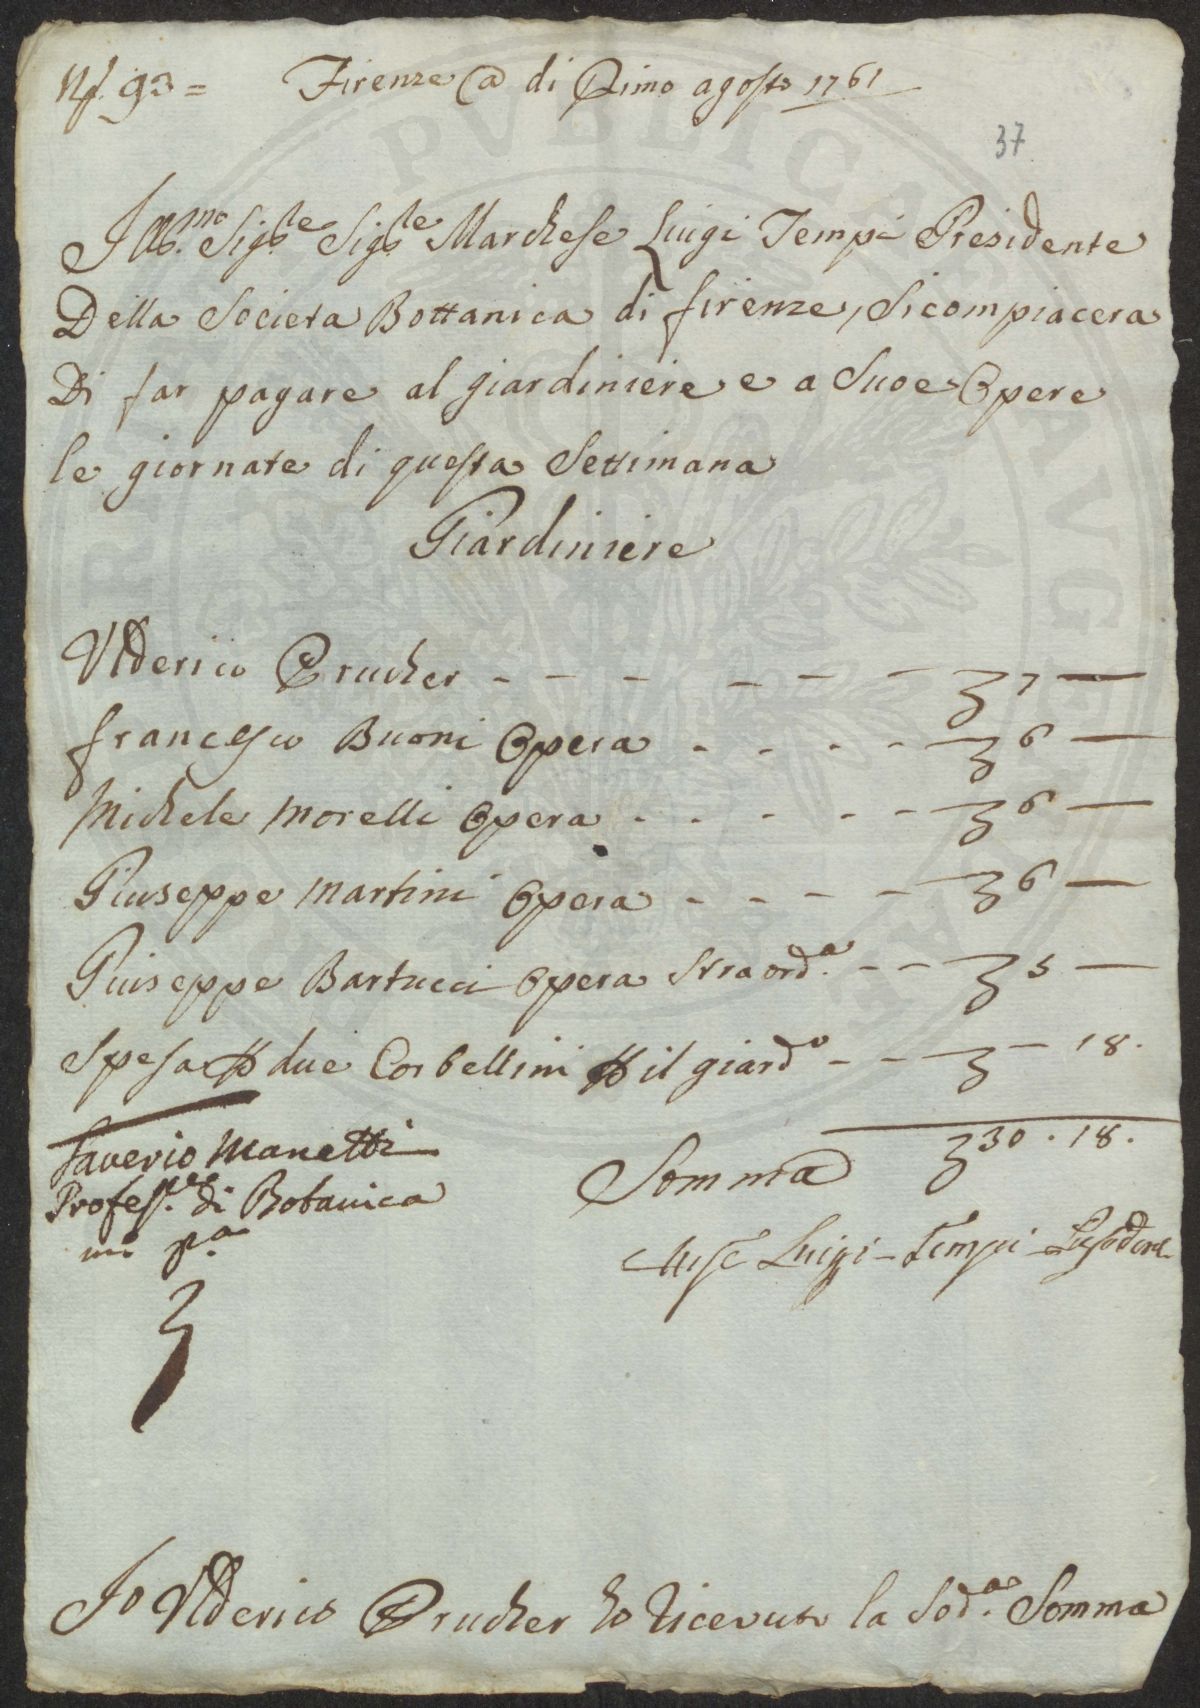 N.º 93 = Firenze a di Primo agosto 1761
37
Ill.mo Sig.re Sig.re Marchese Luigi Tempi Presidente
Della Societa Bottanica di firenze, Si compiacera
Di far pagare al giardiniere e a Suoe Opere
le giornate di questa Settimana
Giardiniere
Ulderico Prucher - - - - - - £ 7 —
francesco Buoni Opera - - - - £ 6 —
Michele Morelli Opera - - - - - £ 6 —
Giuseppe Martini Opera - - - - £ 6 —
Giuseppe Bartucci Opera Straord.a - - £ 5 —
Spesa p due Corbellini p il giard.o - - £ - 18.
Somma £ 30 . 18.
Saverio Manetti
Profess.re di Botanica
m p.a
Luigi Tempi
Io Ulderico Prucher ho ricevuto la Sod.a Somma
PVBLICAE